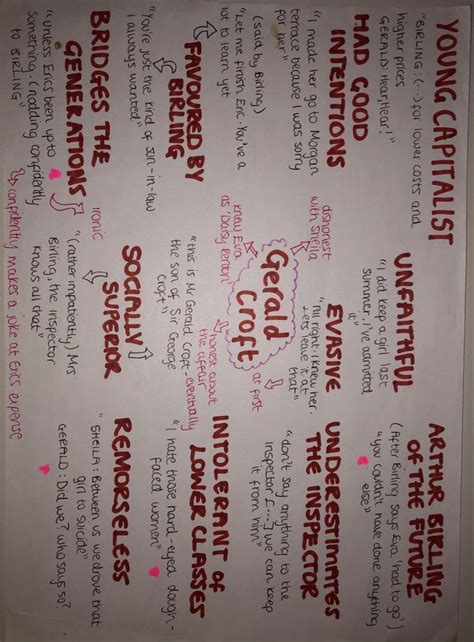 YOUNG CAPITALIST
"BIRLING: (...) for lower costs and
higher prices
GERALD: Hear, hear!"
HAD GOOD
INTENTIONS
"I made her go to Morgan
terrace because I was sorry
for her"
(said by Birling)
"Let me finish Eric. You've a
lot to learn yet
FAVOURED BY
BIRLING
"You're just the kind of son-in-law
I always wanted"
BRIDGES THE
GENERATIONS
"unless Eric's been up to
something. (nodding confidently
to BIRLING"
↳ confidently makes a joke at Eric's expense
UNFAITHFUL
"I did keep a girl last
summer. I've admitted
it"
EVASIVE
"All right. I knew her.
Let's leave it at
that"
dishonest
with Sheila
at first
Gerald
Croft
knew Eva
as 'Daisy Renton'
honest about
the affair
eventually
"this is Mr Gerald Croft-
the son of Sir George
Croft"
SOCIALLY
SUPERIOR
ironic
"(rather impatiently) Mrs
Birling, the inspector
knows all that"
ARTHUR BIRLING
OF THE FUTURE
(After Birling says Eva 'had to go')
"you couldn't have done anything
else"
UNDERESTIMATES
THE INSPECTOR
"don't say anything to the
inspector [...] we can keep
it from him"
INTOLERANT OF
LOWER CLASSES
"I hate those hard-eyed dough-
faced women"
REMORSELESS
"SHEILA: Between us we drove that
girl to suicide"
GERALD: Did we? Who says so?